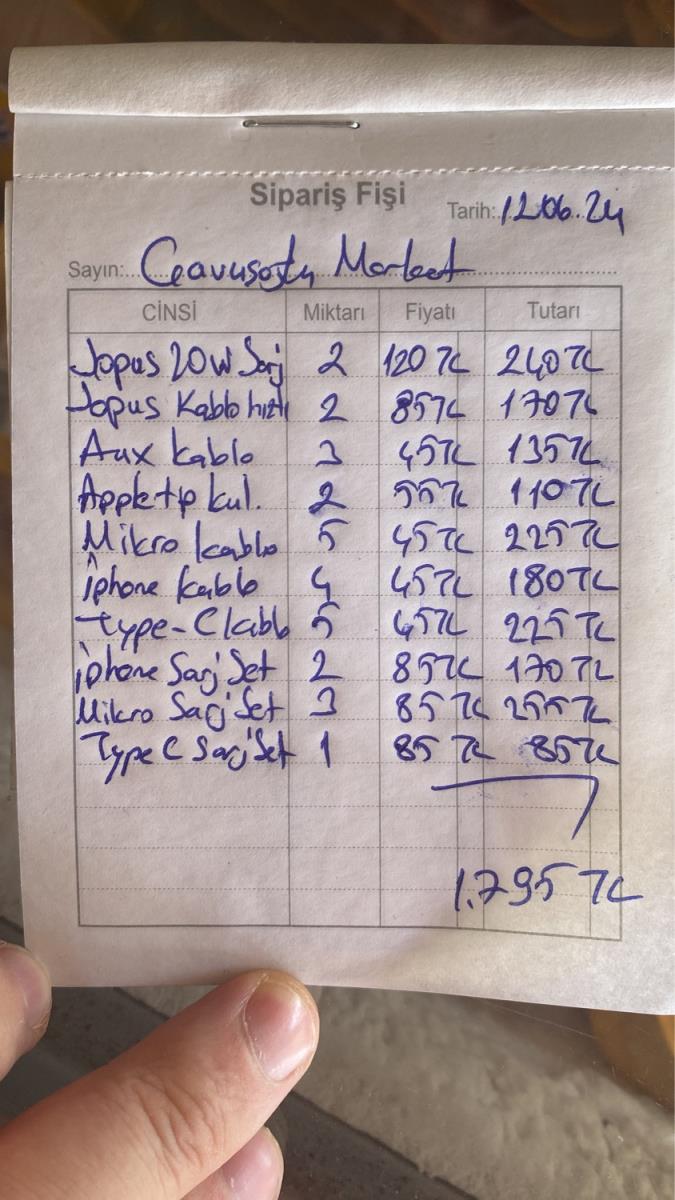 Sipariş Fişi
Tarih: 12.06.24
Sayın: Market
CİNSİ Miktarı Fiyatı Tutarı
Jopus 20W Sarj 2 120 TL 240 TL
Jopus Kablo hızlı 2 85 TL 170 TL
Aux kablo 3 45 TL 135 TL
Apple tip kul. 2 55 TL 110 TL
Mikro kablo 5 45 TL 225 TL
iphone kablo 4 45 TL 180 TL
Type-C kablo 5 45 TL 225 TL
iphone Sarj Set 2 85 TL 170 TL
Mikro Sarj Set 3 85 TL 255 TL
Type C Sarj Set 1 85 TL 85 TL
1.795 TL